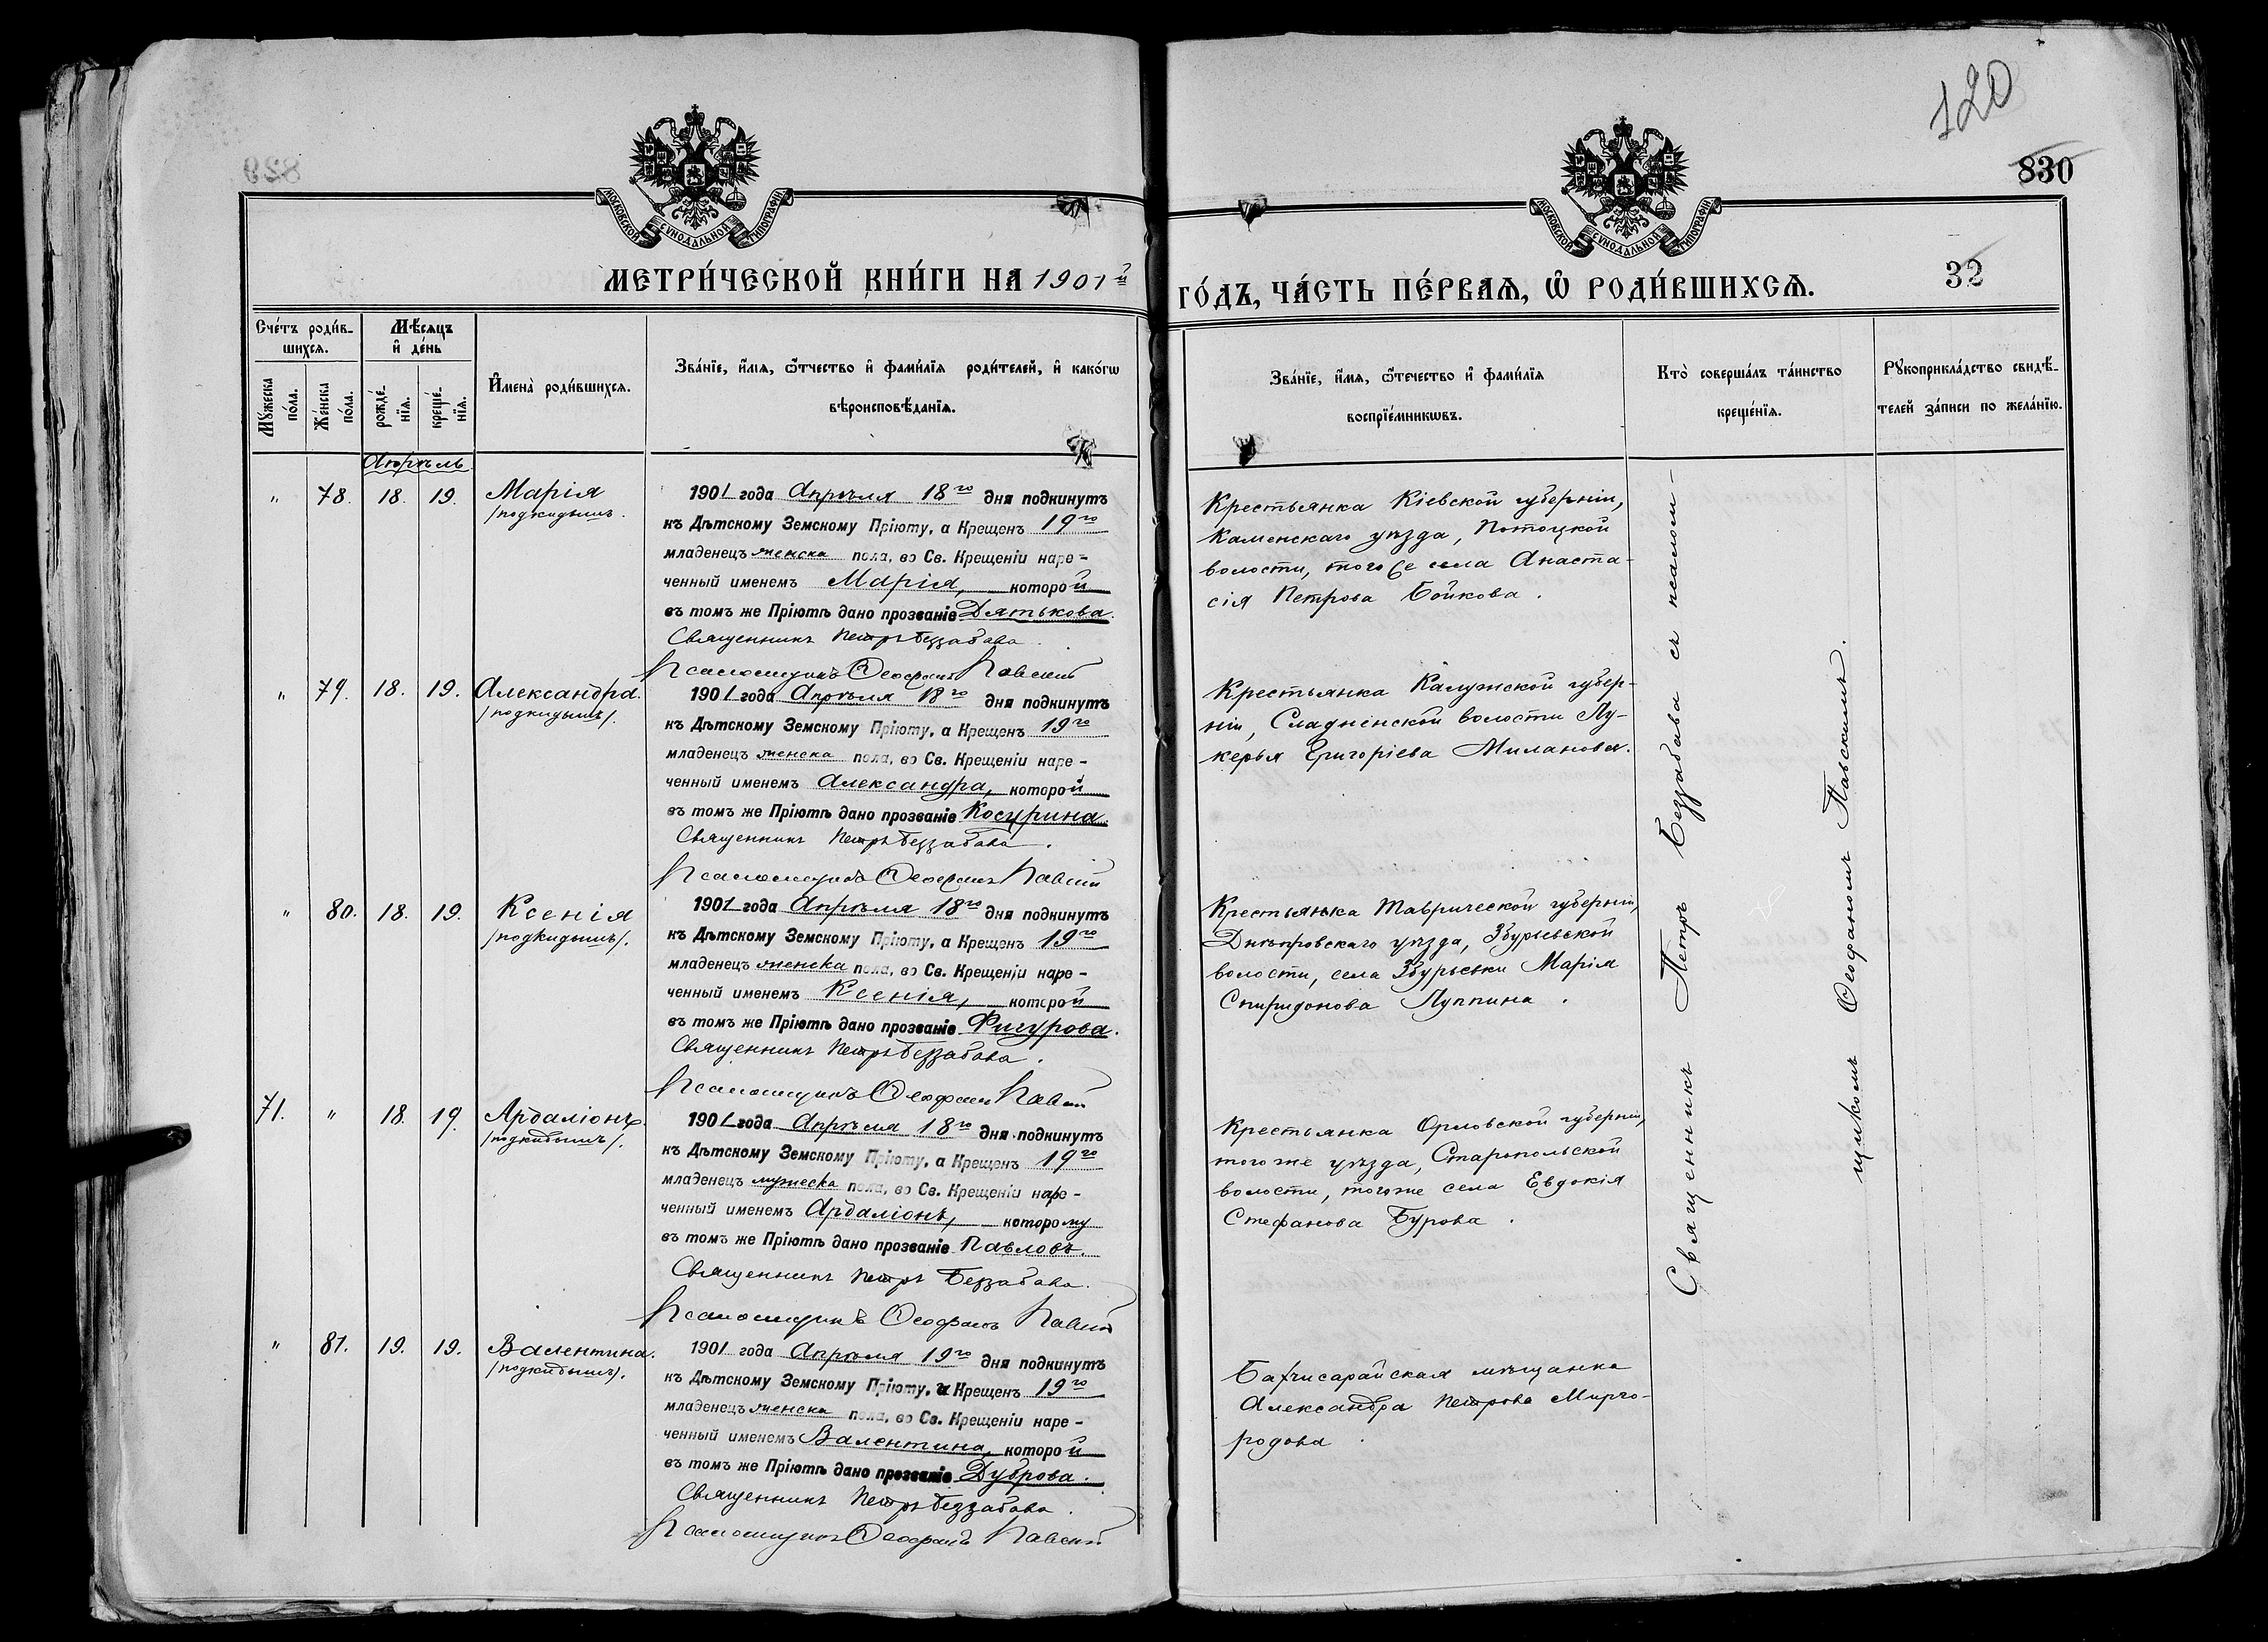 120
830
829
МОСКОВСКОЙ СѴНОДАЛЬНОЙ ТИПОГРАФІИ
МОСКОВСКОЙ СѴНОДАЛЬНОЙ ТИПОГРАФІИ
МЕТРИ́ЧЕСКОЙ КНИ́ГИ НА 1901й
ГО́ДЪ, ЧА́СТЬ ПЕ́РВАѦ, Ѡ҆ РОДИ́ВШИХСѦ.
32
Сче́тъ роди́в-
шихсѧ.
Мꙋжеска по́ла.
Же́нска по́ла.
Мѣ́сѧцъ
и҆ де́нь
рожде́-
нїѧ.
креще́-
нїѧ.
И҆мена̀ роди́вшихсѧ.
Зва́нїе, и҆́мѧ, ѻ҆́тчество и҆ фами́лїѧ роди́телей, и҆ како́гѡ
вѣроисповѣ́данїѧ.
Зва́нїе, и҆́мѧ, ѻ҆те́чество и҆ фами́лїѧ
воспрїе́мникѡвъ.
Кто̀ соверша́лъ та́инство
креще́нїѧ.
Рꙋкоприкла́дство свидѣ́-
телей за́писи по жела́нїю.
Апрѣль
" 78. 18. 19. Марія
/подкидышъ.
1901 года Апрѣля 18го дня подкинутъ
къ Дѣтскому Земскому Пріюту, а Крещенъ 19го
младенецъ женска пола, во Св. Крещеніи наре-
ченный именемъ Марія, которой
въ томъ же Пріютѣ дано прозваніе Дятькова.
Священникъ Петръ Беззабава.
Псаломщикъ Ѳеофанъ Павскій
Крестьянка Кіевской губерніи,
Каменскаго уѣзда, Потоцкой
волости, того же села Анаста-
сія Петрова Бойкова.
" 79. 18. 19. Александра.
/подкидышъ/.
1901 года Апрѣля 18го дня подкинутъ
къ Дѣтскому Земскому Пріюту, а Крещенъ 19го
младенецъ женска пола, во Св. Крещеніи наре-
ченный именемъ Александра, которой
въ томъ же Пріютѣ дано прозваніе Косурина.
Священникъ Петръ Беззабава.
Псаломщикъ Ѳеофанъ Павскій
Крестьянка Калужской губер-
ніи, Сладненской волости Лу-
керья Григоріева Миланова.
" 80. 18. 19. Ксенія
/подкидышъ/.
1901 года Апрѣля 18го дня подкинутъ
къ Дѣтскому Земскому Пріюту, а Крещенъ 19го
младенецъ женска пола, во Св. Крещеніи наре-
ченный именемъ Ксенія, которой
въ томъ же Пріютѣ дано прозваніе Фигурова.
Священникъ Петръ Беззабава.
Псаломщикъ Ѳеофанъ Павскій
Крестьянка Таврической губерніи,
Днѣпровскаго уѣзда, Збурьевской
волости, села Збурьевки Марія
Спиридонова Луппина.
71. " 18. 19. Ардаліонъ.
/подкидышъ/.
1901 года Апрѣля 18го дня подкинутъ
къ Дѣтскому Земскому Пріюту, а Крещенъ 19го
младенецъ мужеска пола, во Св. Крещеніи наре-
ченный именемъ Ардаліонъ, которому
въ томъ же Пріютѣ дано прозваніе Павловъ.
Священникъ Петръ Беззабава.
Псаломщикъ Ѳеофанъ Павскій
Крестьянка Орловской губерніи,
того же уѣзда, Старопольской
волости, того же села Евдокія
Стефанова Бурова.
" 81. 19. 19. Валентина.
/подкидышъ/.
1901 года Апрѣля 19го дня подкинутъ
къ Дѣтскому Земскому Пріюту, а Крещенъ 19го
младенецъ женска пола, во Св. Крещеніи наре-
ченный именемъ Валентина, которой
въ томъ же Пріютѣ дано прозваніе Дуброва.
Священникъ Петръ Беззабава.
Псаломщикъ Ѳеофанъ Павскій
Бахчисарайская мѣщанка
Александра Петрова Мирго-
родова.
Священникъ Петръ Беззабава съ псалом-
щикомъ Ѳеофаномъ Павскимъ.